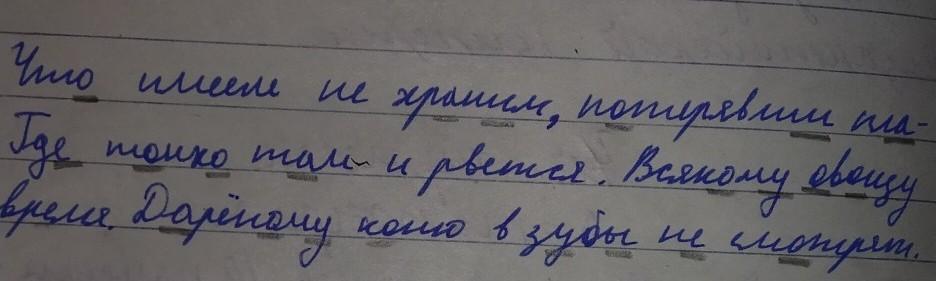 Что имеем не храним, потерявши пла-
Где тонко там и рвется. Всякому овощу
время. Дарёному коню в зубы не смотрят.